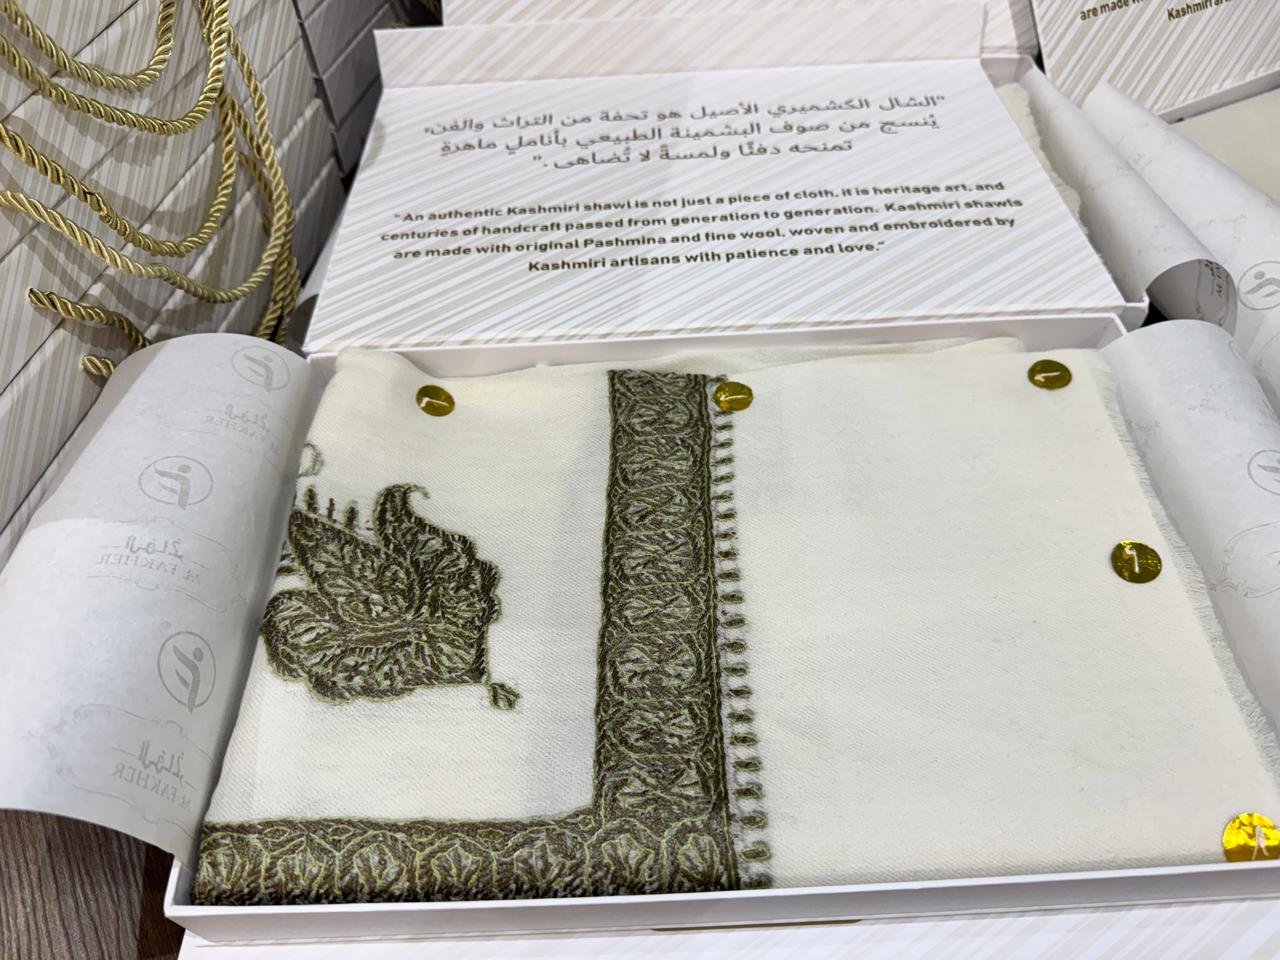 "الشال الكشميري الأصيل هو تحفة من التراث والفن،
يُنسج من صوف البشمينة الطبيعي بأناملٍ ماهرةٍ
تمنحه دفئًا ولمسةً لا تُضاهى."
"An authentic Kashmiri shawl is not just a piece of cloth, it is heritage art, and
centuries of handcraft passed from generation to generation. Kashmiri shawls
are made with original Pashmina and fine wool, woven and embroidered by
Kashmiri artisans with patience and love."
are made
Kashmiri
الفاخر
AL FAKHER
الفاخر
AL FAKHER
الفاخر
AL FAKHER